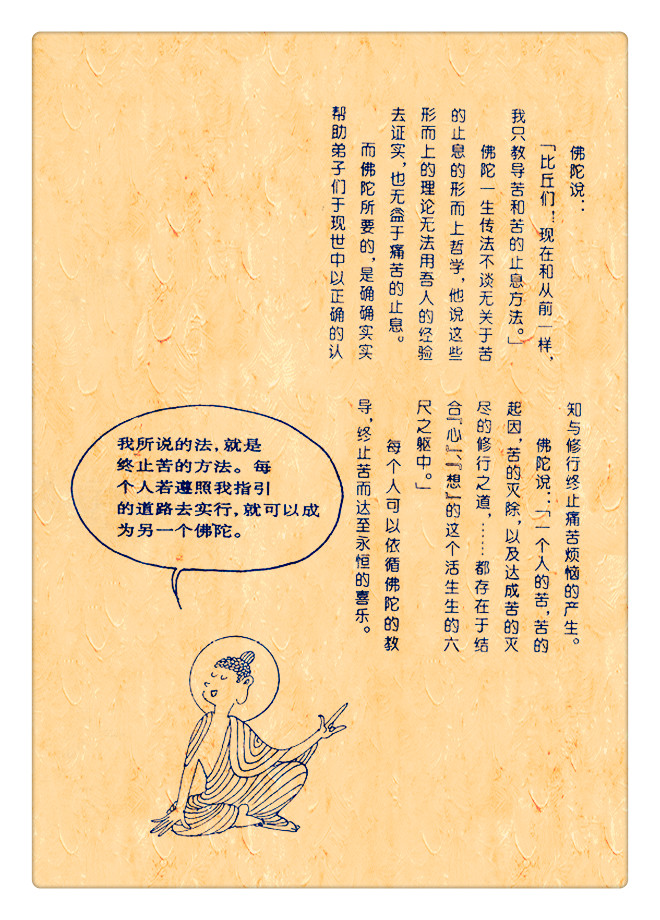 佛陀说：
「比丘们！现在和从前一样，
我只教导苦和苦的止息方法。」
佛陀一生传法不谈无关于苦
的止息的形而上哲学，他说这些
形而上的理论无法用吾人的经验
去证实，也无益于痛苦的止息。
而佛陀所要的，是确确实实
帮助弟子们于现世中以正确的认
知与修行终止痛苦烦恼的产生。
佛陀说：「一个人的苦，苦的
起因，苦的灭除，以及达成苦的灭
尽的修行之道，……都存在于结
合『心』、『想』的这个活生生的六
尺之躯中。」
每个人可以依循佛陀的教
导，终止苦而达至永恒的喜乐。
我所说的法，就是
终止苦的方法。每
个人若遵照我指引
的道路去实行，就可以成
为另一个佛陀。